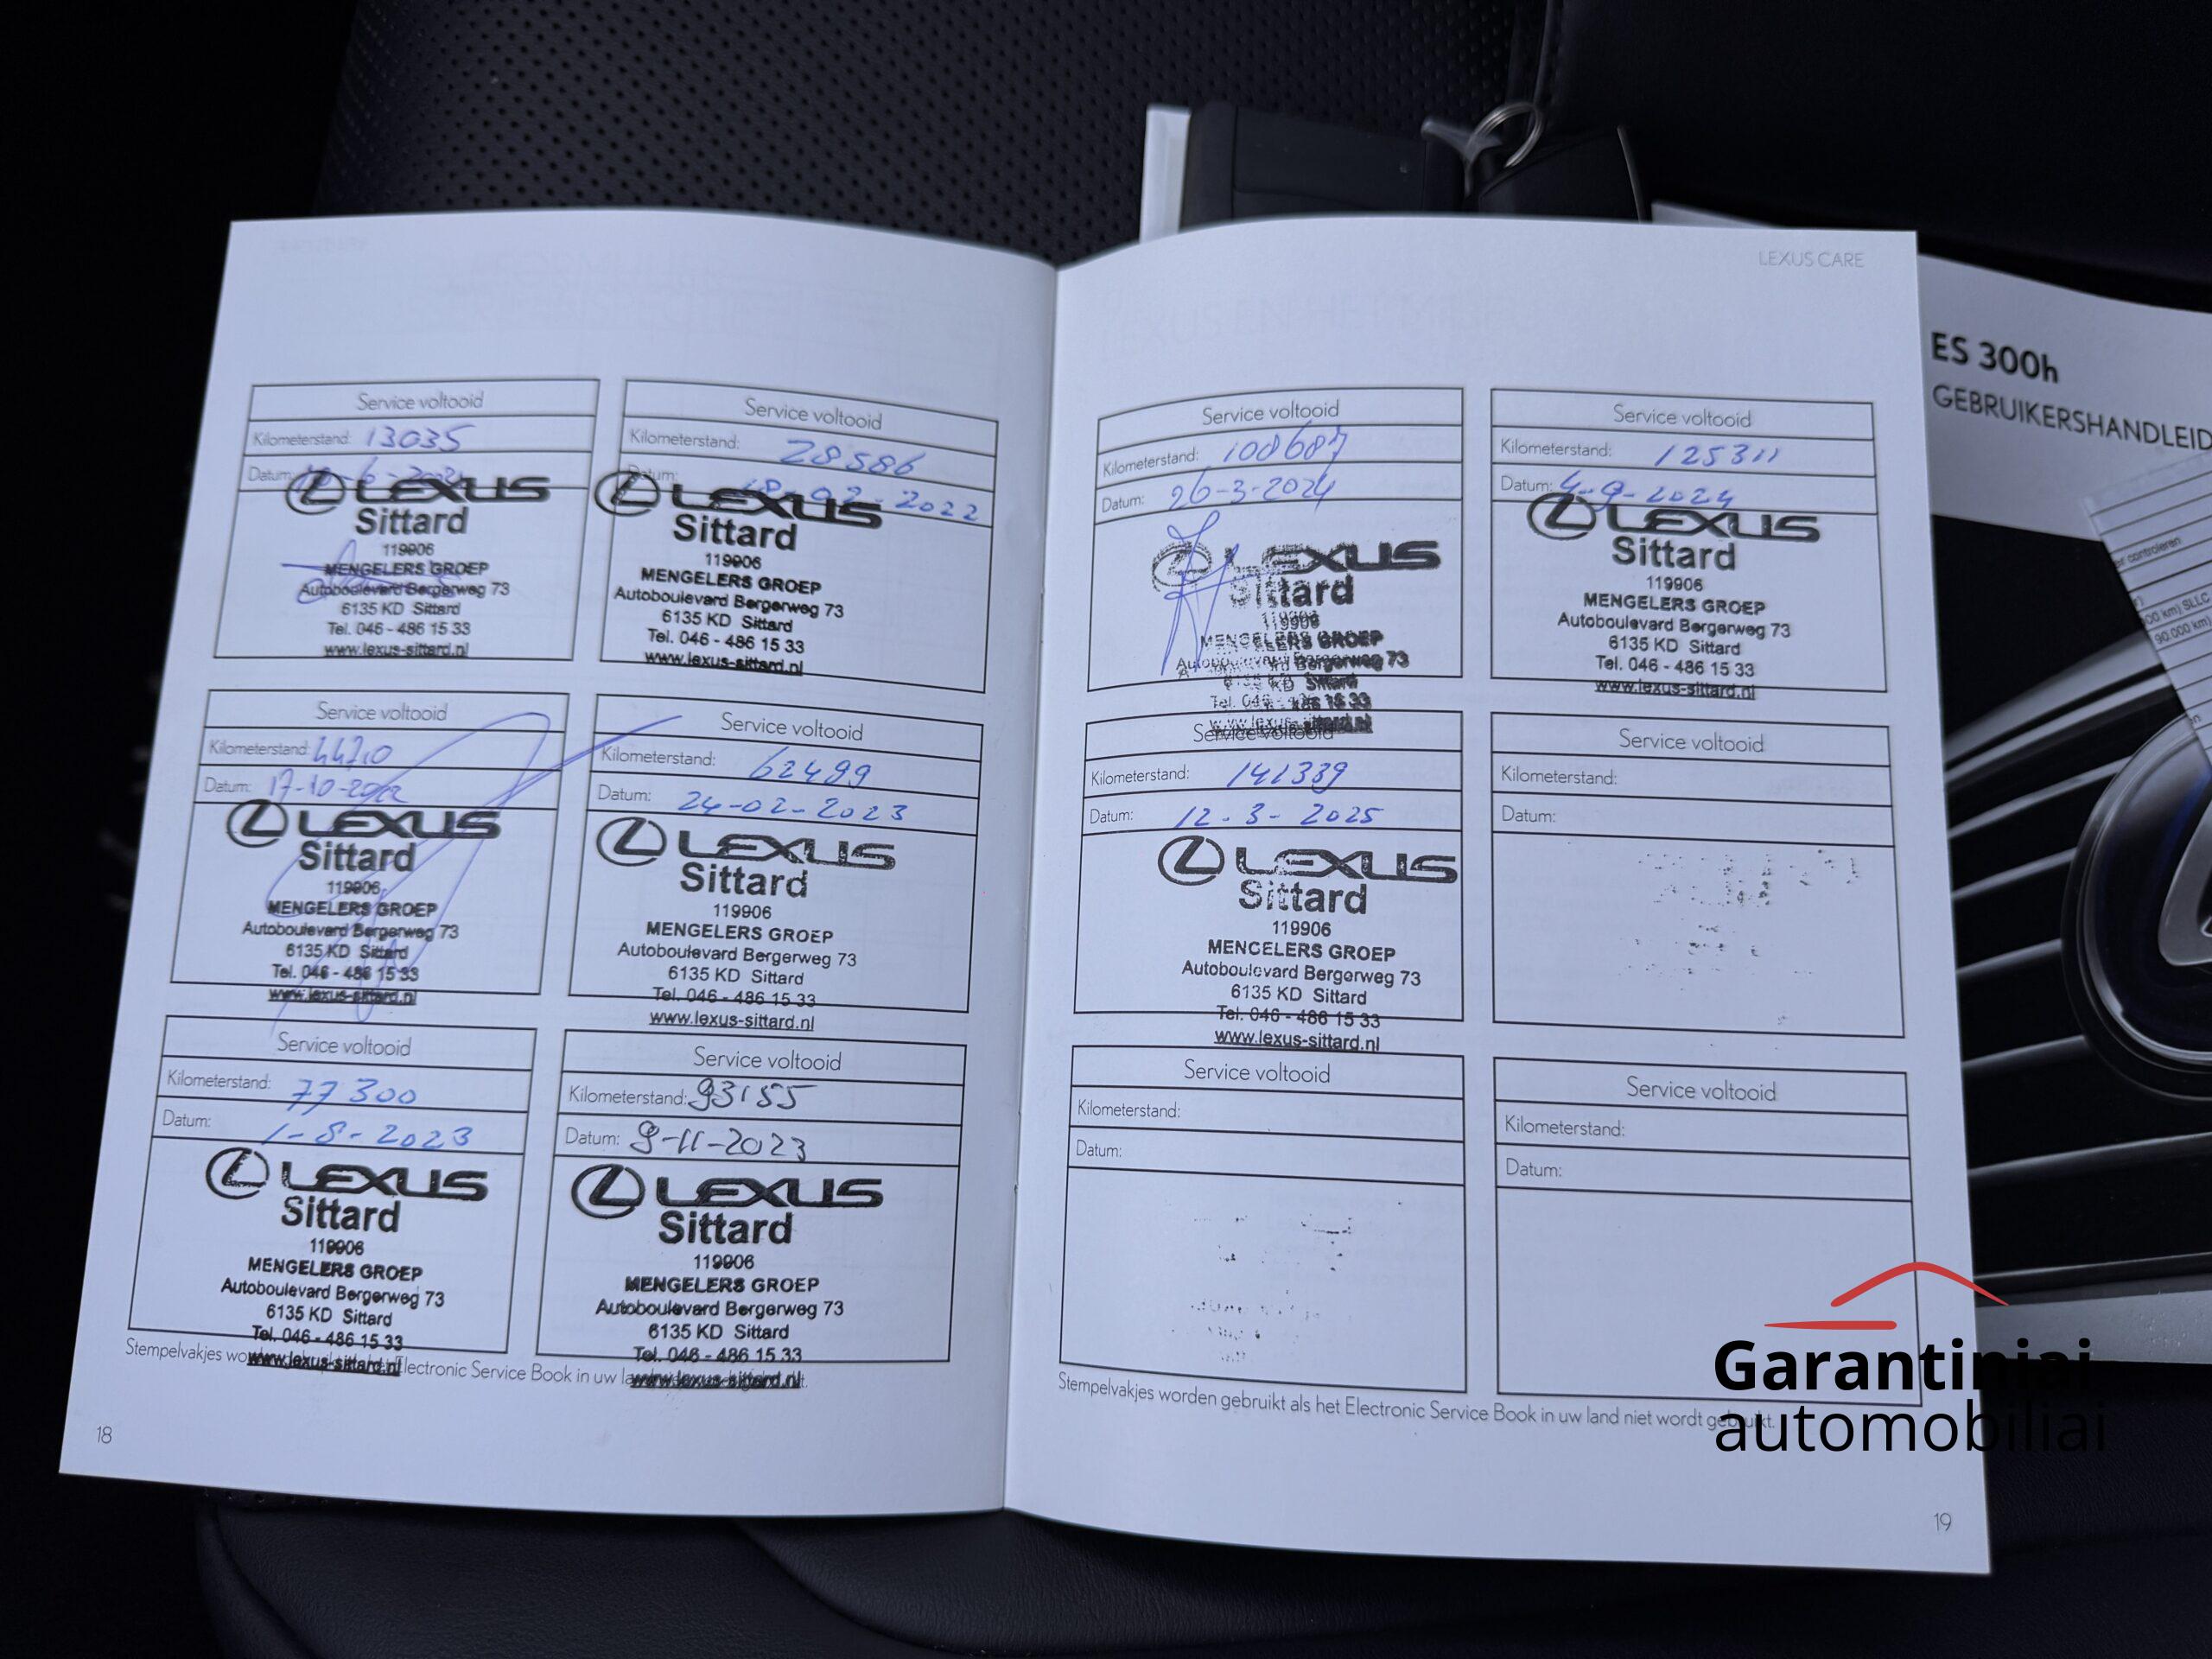 LEXUS CARE
Service voltooid
Kilometerstand: 13035
Datum: -6-2021
LEXUS
Sittard
119906
MENGELERS GROEP
Autoboulevard Bergerweg 73
6135 KD Sittard
Tel. 046 - 486 15 33
www.lexus-sittard.nl
Service voltooid
Kilometerstand: 28586
Datum: 18-02-2022
LEXUS
Sittard
119906
MENGELERS GROEP
Autoboulevard Bergerweg 73
6135 KD Sittard
Tel. 046 - 486 15 33
www.lexus-sittard.nl
Service voltooid
Kilometerstand: 44710
Datum: 17-10-2022
LEXUS
Sittard
119906
MENGELERS GROEP
Autoboulevard Bergerweg 73
6135 KD Sittard
Tel. 046 - 486 15 33
www.lexus-sittard.nl
Service voltooid
Kilometerstand: 62499
Datum: 24-02-2023
LEXUS
Sittard
119906
MENGELERS GROEP
Autoboulevard Bergerweg 73
6135 KD Sittard
Tel. 046 - 486 15 33
www.lexus-sittard.nl
Service voltooid
Kilometerstand: 77300
Datum: 1-8-2023
LEXUS
Sittard
119906
MENGELERS GROEP
Autoboulevard Bergerweg 73
6135 KD Sittard
Tel. 046 - 486 15 33
www.lexus-sittard.nl
Service voltooid
Kilometerstand: 93155
Datum: 9-11-2023
LEXUS
Sittard
119906
MENGELERS GROEP
Autoboulevard Bergerweg 73
6135 KD Sittard
Tel. 046 - 486 15 33
www.lexus-sittard.nl
Stempelvakjes Electronic Service Book in uw
18
Service voltooid
Kilometerstand: 108687
Datum: 26-3-2024
LEXUS
Sittard
119906
MENGELERS GROEP
Autoboulevard Bergerweg 73
6135 KD Sittard
Tel. 046 - 486 15 33
www.lexus-sittard.nl
Service voltooid
Kilometerstand: 125311
Datum: 4-9-2024
LEXUS
Sittard
119906
MENGELERS GROEP
Autoboulevard Bergerweg 73
6135 KD Sittard
Tel. 046 - 486 15 33
www.lexus-sittard.nl
Service voltooid
Kilometerstand: 141339
Datum: 12-3-2025
LEXUS
Sittard
119906
MENGELERS GROEP
Autoboulevard Bergerweg 73
6135 KD Sittard
Tel. 046 - 486 15 33
www.lexus-sittard.nl
Service voltooid
Kilometerstand:
Datum:
Service voltooid
Kilometerstand:
Datum:
Service voltooid
Kilometerstand:
Datum:
Stempelvakjes worden gebruikt als het Electronic Service Book in uw land niet wordt gebruikt.
19
ES 300h
GEBRUIKERSHANDLEID
controleren
00 km) SLLC
90.000 km)
Garantiniai
automobiliai